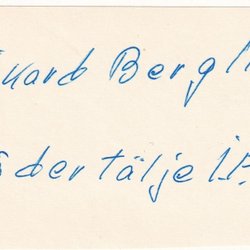 ikard Bergl
dertälje I.F